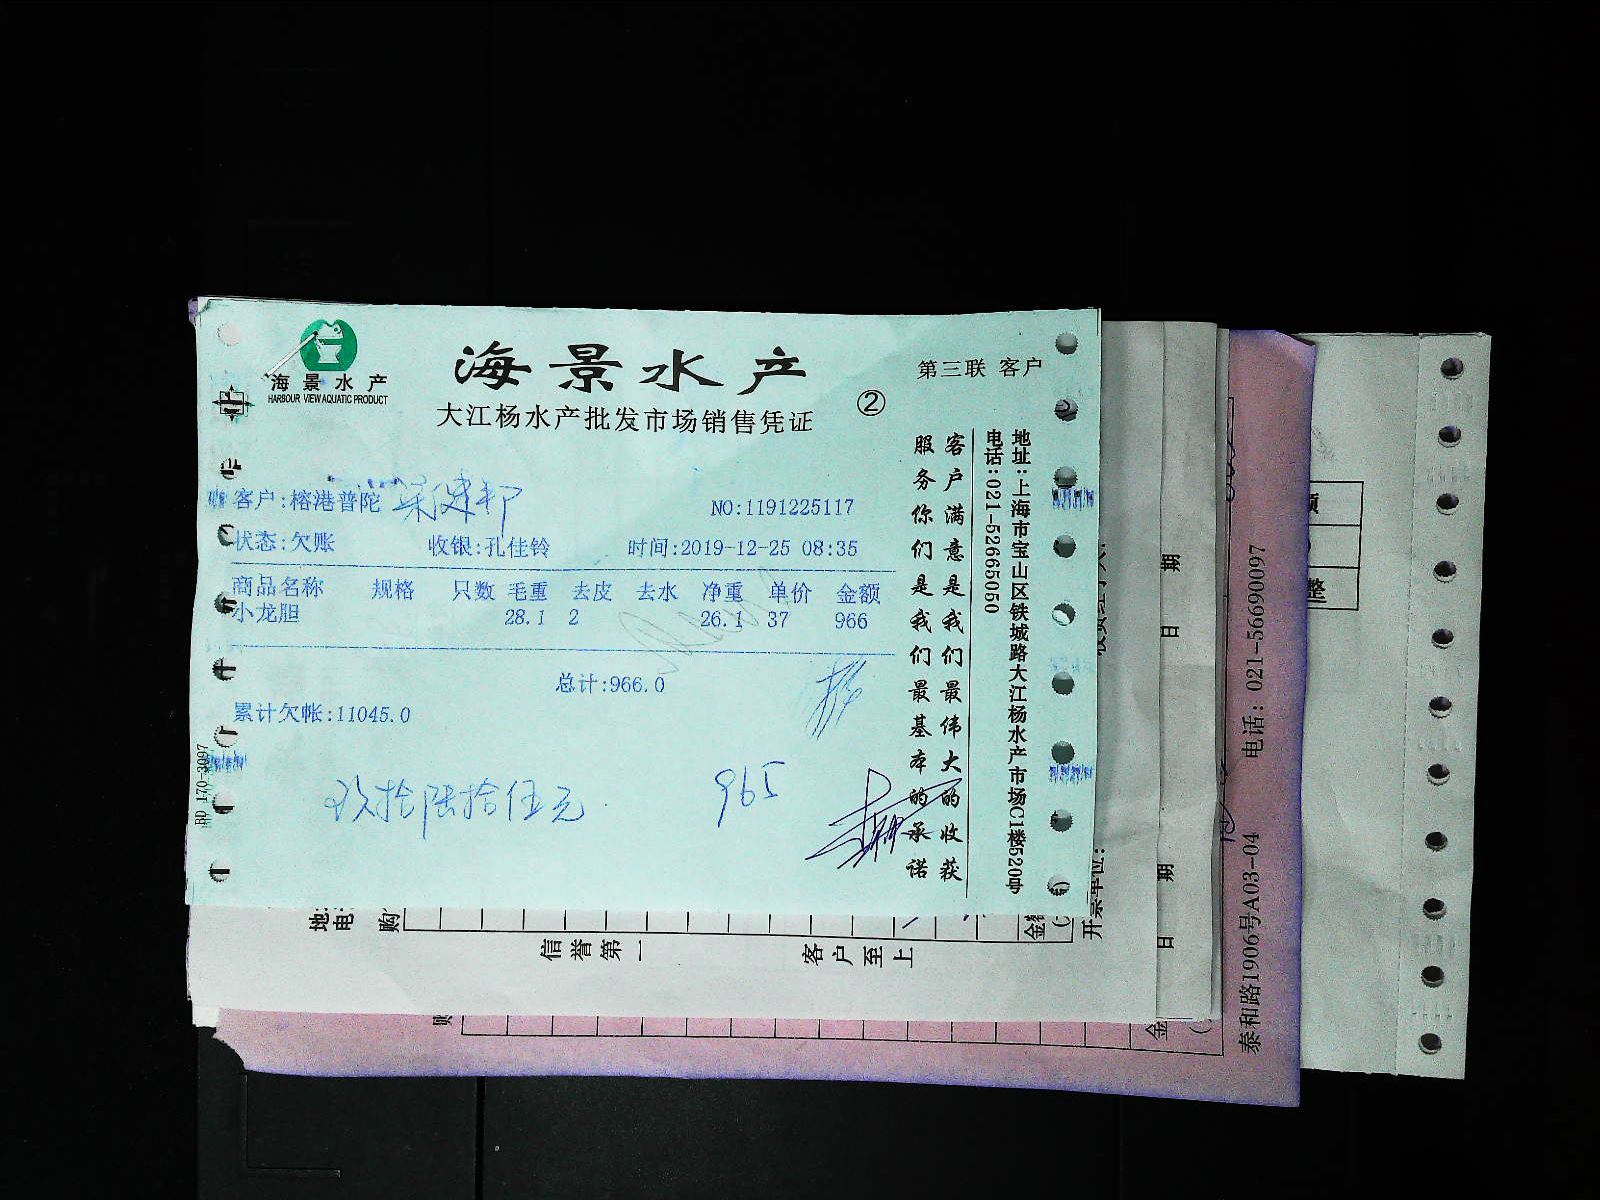 海景水产
HARBOUR VIEW AQUATIC PRODUCT
海景水产
大江杨水产批发市场销售凭证
②
第三联 客户
客户:榕港普陀
NO:1191225117
状态:欠账 收银:孔佳铃 时间:2019-12-25 08:35
商品名称 规格 只数 毛重 去皮 去水 净重 单价 金额
小龙胆 28.1 2 26.1 37 966
总计:966.0
累计欠帐:11045.0
玖拾陆拾伍元 965
客户满意是我们最伟大的收获
服务你们是我们最基本的承诺
地址:上海市宝山区铁城路大江杨水产市场C1楼520号
电话:021-52665050
BD 170-3097
地
电
购
信誉第一 客户至上
开票单位:
日 期
日 期
泰和路1906号A03-04 电话: 021-56690097
整